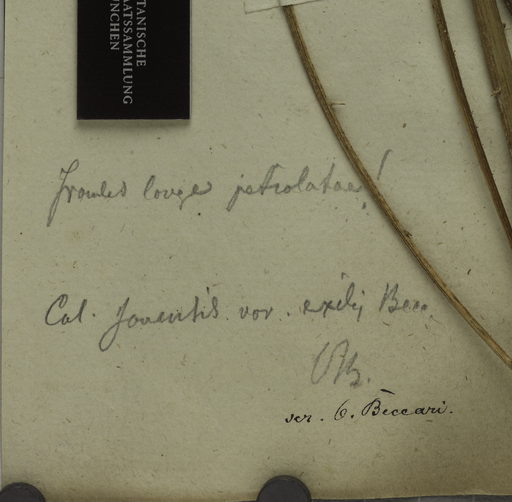 TANISCHE
AATSSAMMLUNG
ÜNCHEN
Frondes longe petiolatae!
Cal. var. exilis Becc.
scr. O. Beccari.